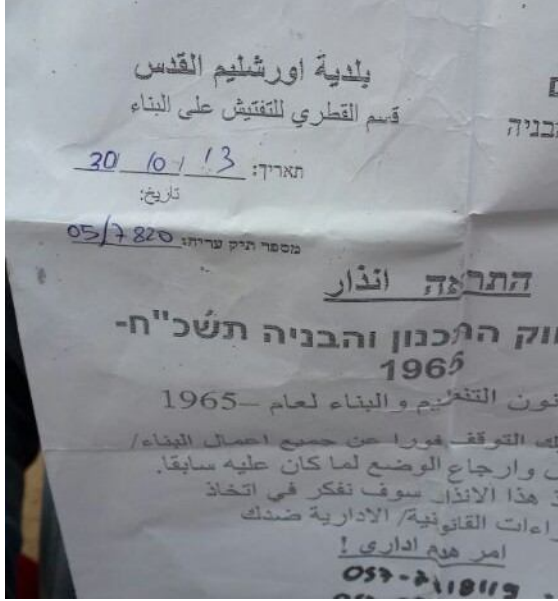 بلدية اورشليم القدس
قسم القطري للتفتيش على البناء
הבניה
תאריך: 30/ 10/ 13
تاريخ:
מספר תיק עריה: 05/7820
התראה انذار
התכנון והבניה תשכ"ח-
1965
التنظيم و البناء لعام –1965
التوقف فورا عن جميع اعمال البناء/
وارجاع الوضع لما كان عليه سابقا.
هذا الانذار سوف نفكر في اتخاذ
القانونية/ الادارية ضدك
امر هدم اداري !